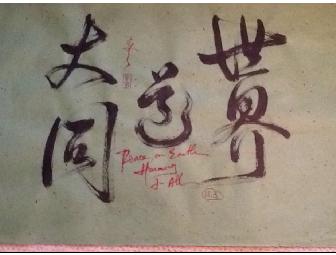 世界
道
大同
Peace on Earth
Harmony
All